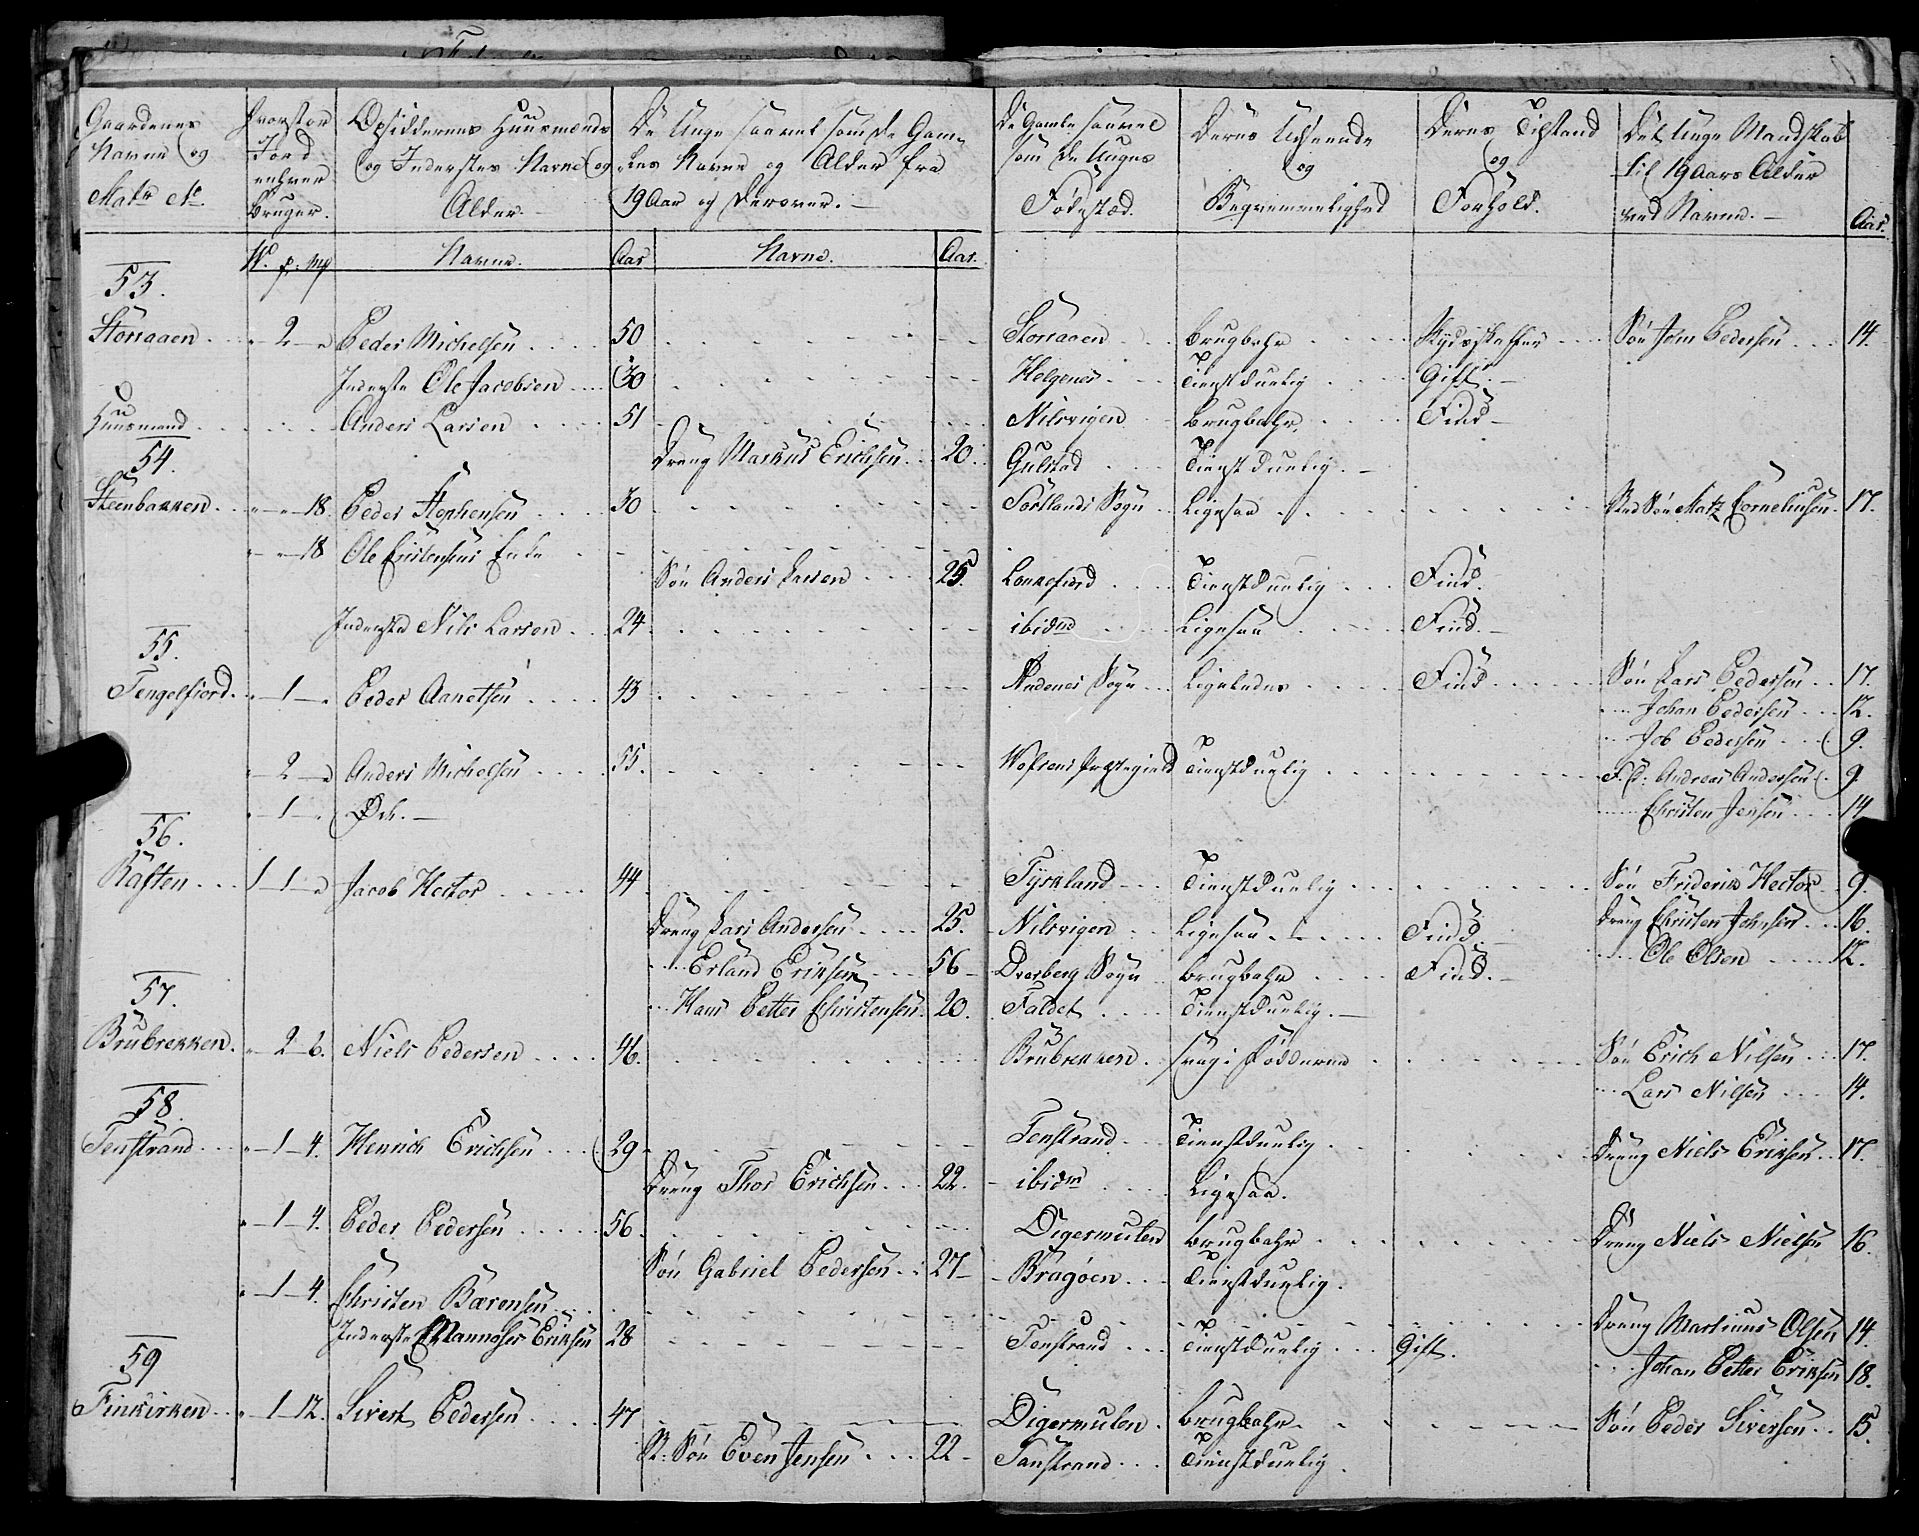 Gaardenes Navne og Matr No. | Hvorstor Jord enhver Bruger. | Opsiddernes Huusmænds og Inderstes Navne og Alder. | De Unge saavel som de Gamles Navne og Alder fra 19 Aar og derover. | De Gamle saavel som de Unges Fødested. | Deres Udseende og Beqvemmelighed | Deres Tilstand og Forhold. | Det Unge Mandskab til 19 Aars Alder ved Navne. | Aar.
W. p. mk | Navne. | Aar | Navne. | Aar.
53.
Storaaen | 2 | Peder Michelsen | 50 | Storaaen | brugbahr | Skydsskaffer | Søn Jens Pedersen | 14.
Inderste Ole Jacobsen | 30 | Helgenes | Tienstduelig | Gift.
Huusmand | Anders Larsen | 51 | Nilsvigen | brugbahr. | Find
Dreng Markus Erichsen | 20. | Gulstad | Tienstduelig.
54.
Steenbakken | 18. | Peder Stephensen | 30 | Sortlands Sogn | Ligesaa | St. Søn Matz Cornelius | 17.
18 | Ole Christensens Enke
Søn Anders Larsen | 25. | Lonkefiord | Tienstduelig | Find.
Inderste Nils Larsen | 24 | ibidm | Ligesaa | Find.
55.
Tengelfiord | 1 | Peder Aanetsen | 43 | Andenes Sogn | Ligeledes | Find | Søn Lars Pedersen | 17.
Johan Pedersen | 12.
Job Pedersen | 9.
2 | Anders Michelsen | 55. | Præstegield | Tienstduelig | F. S. Andreas Andersen | 9
1 | Øde. | Christen Jensen | 14
56.
Raften | 1 1 | Jacob Hector | 44 | Tyskland | Tienstduelig | Søn Friderik Hector | 9.
Dreng Lars Andersen | 25. | Nilsvigen | Ligesaa | Find. | Dreng Christen Johnsen | 16.
Erland Eriksen | 56 | Dverberg Sogn | brugbahr | Find. | Ole Olsen | 12.
Hans Petter Christensen | 20. | Faldet | Tienstduelig.
57.
Brubrekken. | 2 6. | Niels Pedersen | 46. | Brubrekken | svag i Fødderne | Søn Erich Nilsen | 17.
Lars Nilsen | 14.
58.
Tenstrand | 1 4. | Henrich Erichsen | 29 | Tenstrand | Tienstduelig | Dreng Niels Eriksen | 17.
Dreng Thor Erichsen | 22. | ibidm | Ligesaa.
1 4. | Peder Pedersen | 56 | Digermulen | brugbahr | Dreng Niels Nielsen | 16.
Søn Gabriel Pedersen | 27 | Bragøen | Tienstduelig.
1 4. | Christen Bærensen | Dreng Martinus Olsen | 14.
Inderste Mannases Eriksen | 28 | Tenstrand | Tienstduelig | Gift. | Johan Petter Eriksen | 18.
59
Finkirken | 1 12. | Sivert Pedersen | 47 | Digermulen | brugbahr | Søn Peder Siversen | 15.
St: Søn Even Jensen | 22 | Tanstrand | Tienstduelig.